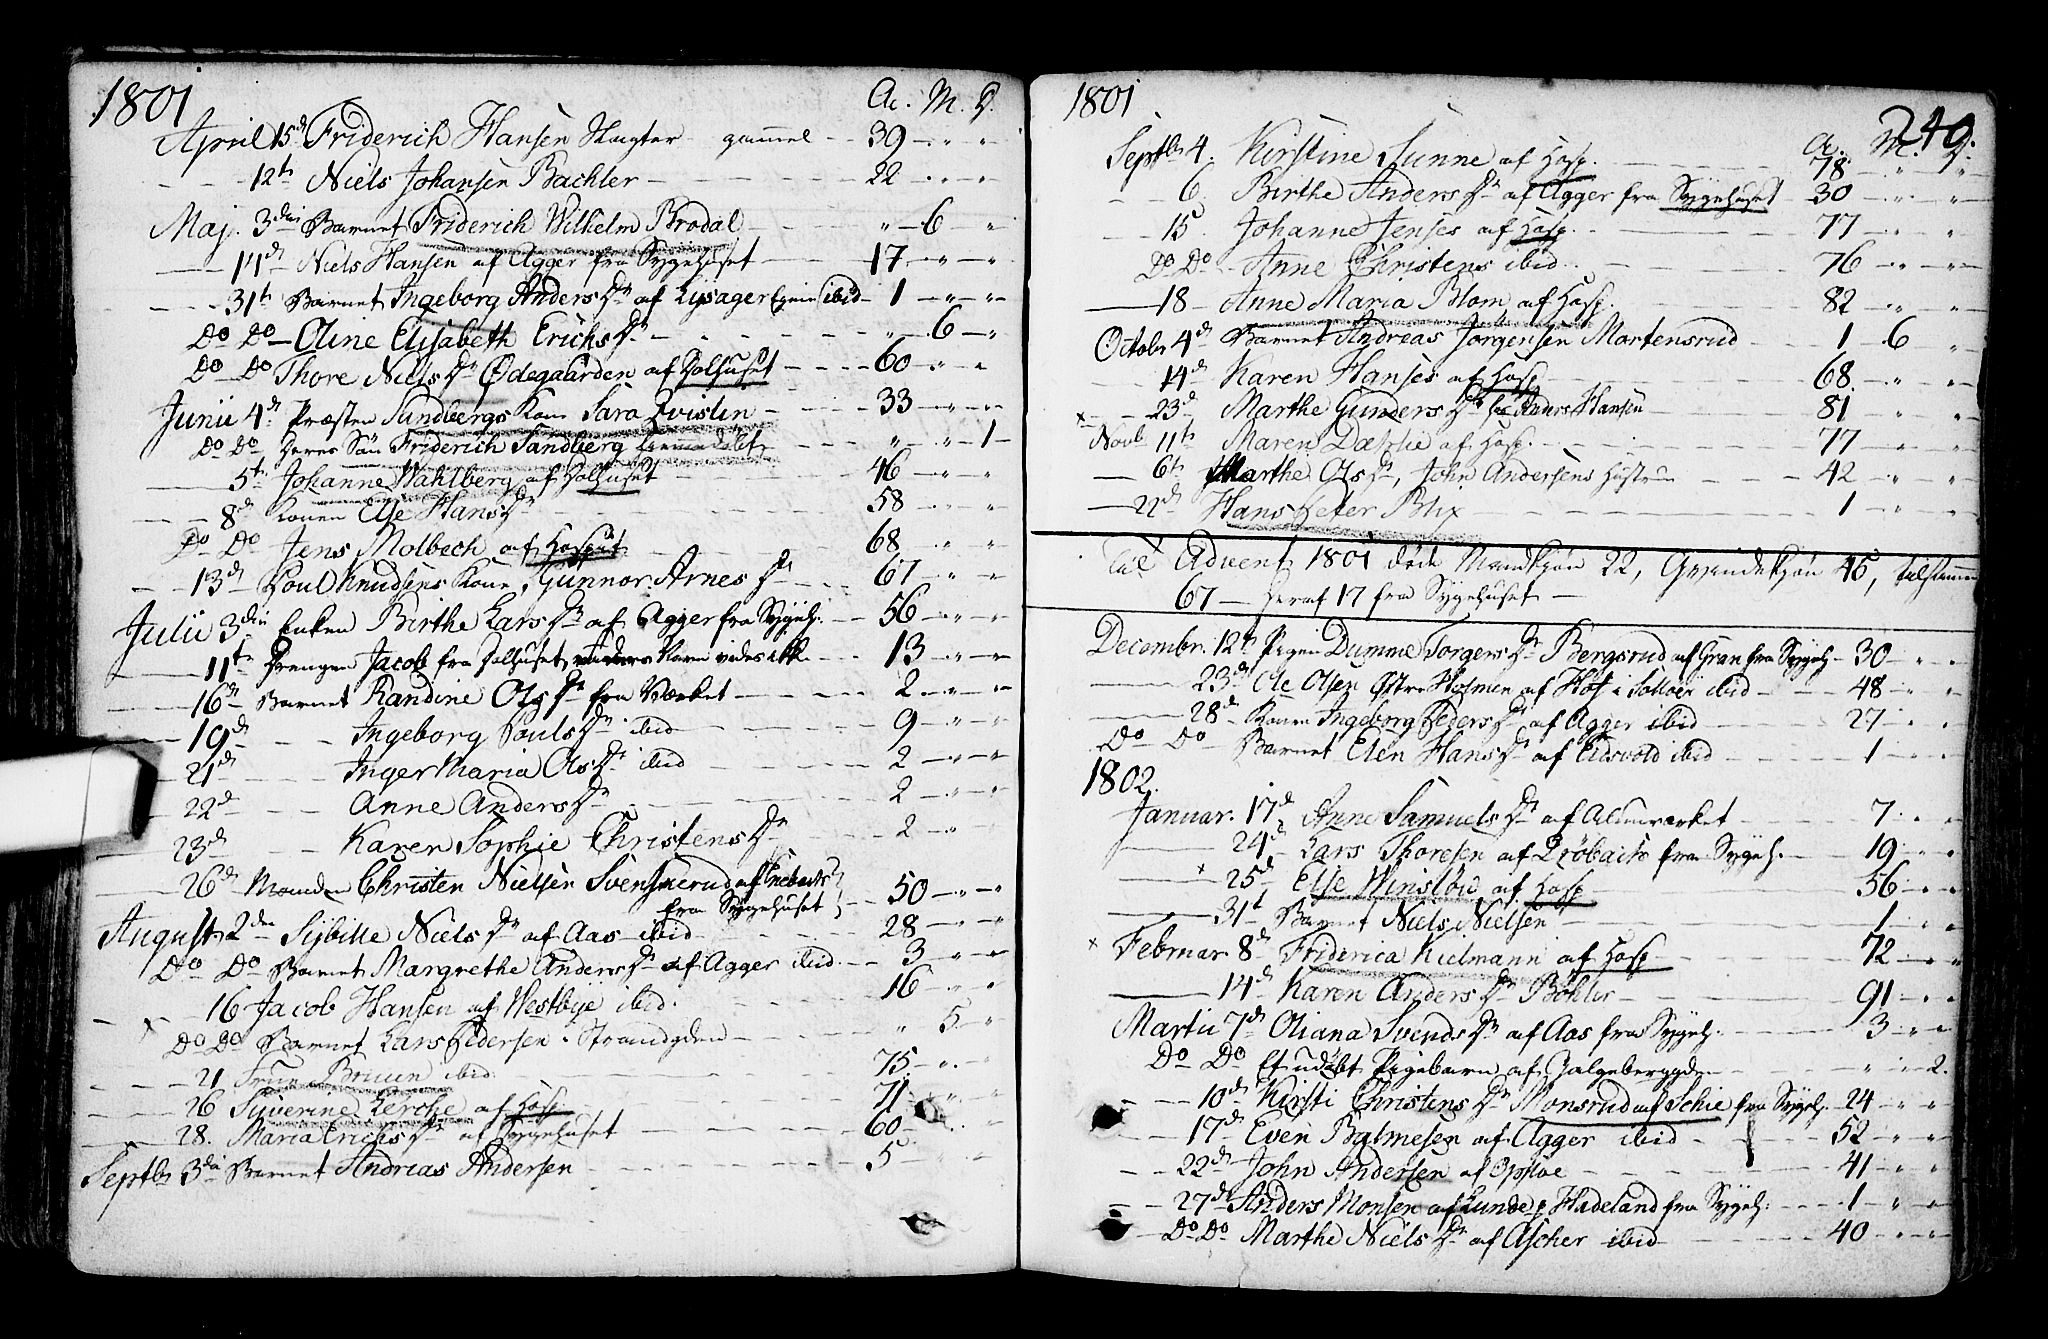 1801 A. M. D.
April 15d Friderich Hansen Slagter gammel 39 " "
12t Niels Johansen Bachler 22 " "
Maj. 3die Barnet Friderich Wilhelm Brodal " 6 "
14d Niels Hansen af Agger fra Sygehuset 17 " "
31t Barnet Ingeborg Anders Dr af ibid 1 " "
Do Do Oline Elisabeth Erichs Dr " 6 "
Do Do Thore Niels Dr Ødegaarden af Dolhuset 60 " "
Junii 4d Præsten Sundbergs Kone Sara Qvisten 33 " "
Do Do Deres Sön Friderich Sandberg hiemmedöbt " " 1
5t Johanne Wahlberg af Dolhuset 46 " "
8d Konen Else Hans Dr 58 " "
Do Do Jens Molbech af Hospit 68 " "
13d Poul Knudsens Kone, Gunnor Arnes Dr 67 " "
Julii 3die Enken Birthe Lars Dr af Agger fra Sygeh. 56 " "
11t Drengen Jacob fra Dolhuset, Navn vides ikke 13 " "
16de Barnet Randine Ols Dr fra Værket 2 " "
19d Ingeborg Pouls Dr ibid 9 " "
21d Inger Maria Ols Dr ibid 2 " "
22d Anne Anders Dr 2 " "
23d Karen Sophie Christens Dr 2 "
26d Manden Christen Nielsen Svenskerud af Enebach
fra Sygehuset 50 " "
August 2den Sibille Niels Dr af Aas ibid 28 " "
Do Do Barnet Margrethe Anders Dr af Agger ibid. 3 " "
16 Jacob Hansen af Westbye ibid. 16 " "
Do Do Barnet Lars Pedersen Strandgden " 5 "
21 Frue Bruun ibid 75 " "
26 Siverine Lerche af Hosp 71 " "
28. Maria Erichs Dr af Sygehuset 60 " "
Septbr 3die Barnet Andreas Andersen 5 " "
1801 240.
A. M. D.
Septbr 4. Kirstine Sunne af Hosp. 78 " "
6. Birthe Anders Dr af Agger fra Sygehuset 30 " "
15. Johanne Jenses af Hosp. 77 " "
Do Do Anne Christens ibid 76 " "
18 Anne Maria Blom af Hosp. 82 " "
Octobr 4d Barnet Andreas Jörgensen Mortensrud 1 6 "
14d Karen Hanses af Hosp 68 " "
× 23d Marthe Gunders Dr Hansen 81 " "
Novb 11te Maren Dæhlie af Hosp. 77 " "
6te Marthe Ols Dr, John Andersens Hustrue 42 " "
22d Hans Peter Blix 1 " "
Til Advent 1801 döde Mandkjön 22, Qvindekjön 45, tilsammen
67 heraf 17 fra Sygehuset
Decembr. 12te Pigen Dumme Torgers Dr Bergsrud af Gran fra Sygeh. 30 " "
23d Ole Olsen Østre Holmen af Hof i Solloer ibid 48 " "
28d Konen Ingeborg Peders Dr af Agger ibid 27 " "
Do Do Barnet Elen Hans Dr af Eidsvold ibid 1 " "
1802.
Januar. 17d Anne Samuels Dr af Alunværket 7 " "
24d Lars Thoresen af Dröbach fra Sygeh. 19 " "
× 25d Else Winslöw af Hosp 56 " "
31t Barnet Niels Nielsen 1 " "
× Februar 8d Friderica Kielmann af Hosp 72 " "
14d Karen Anders Dr Böhler 91 " "
Martii 7d Oliana Svends Dr af Aas fra Sygeh. 3 " "
Do Do Et udöbt Pigebarn af Galgeberggden " " 2.
10d Kirsti Christens Dr Monsrud af Schie fra Sygeh. 24 " "
17d Even Balmesen af Agger ibid 52 " "
22d John Andersen af Opsloe 41 " "
27d Anders Monsen af Lunde p Hadeland fra Sygeh. 1 " "
Do Do Marthe Niels Dr af Ascher ibid 40 " "